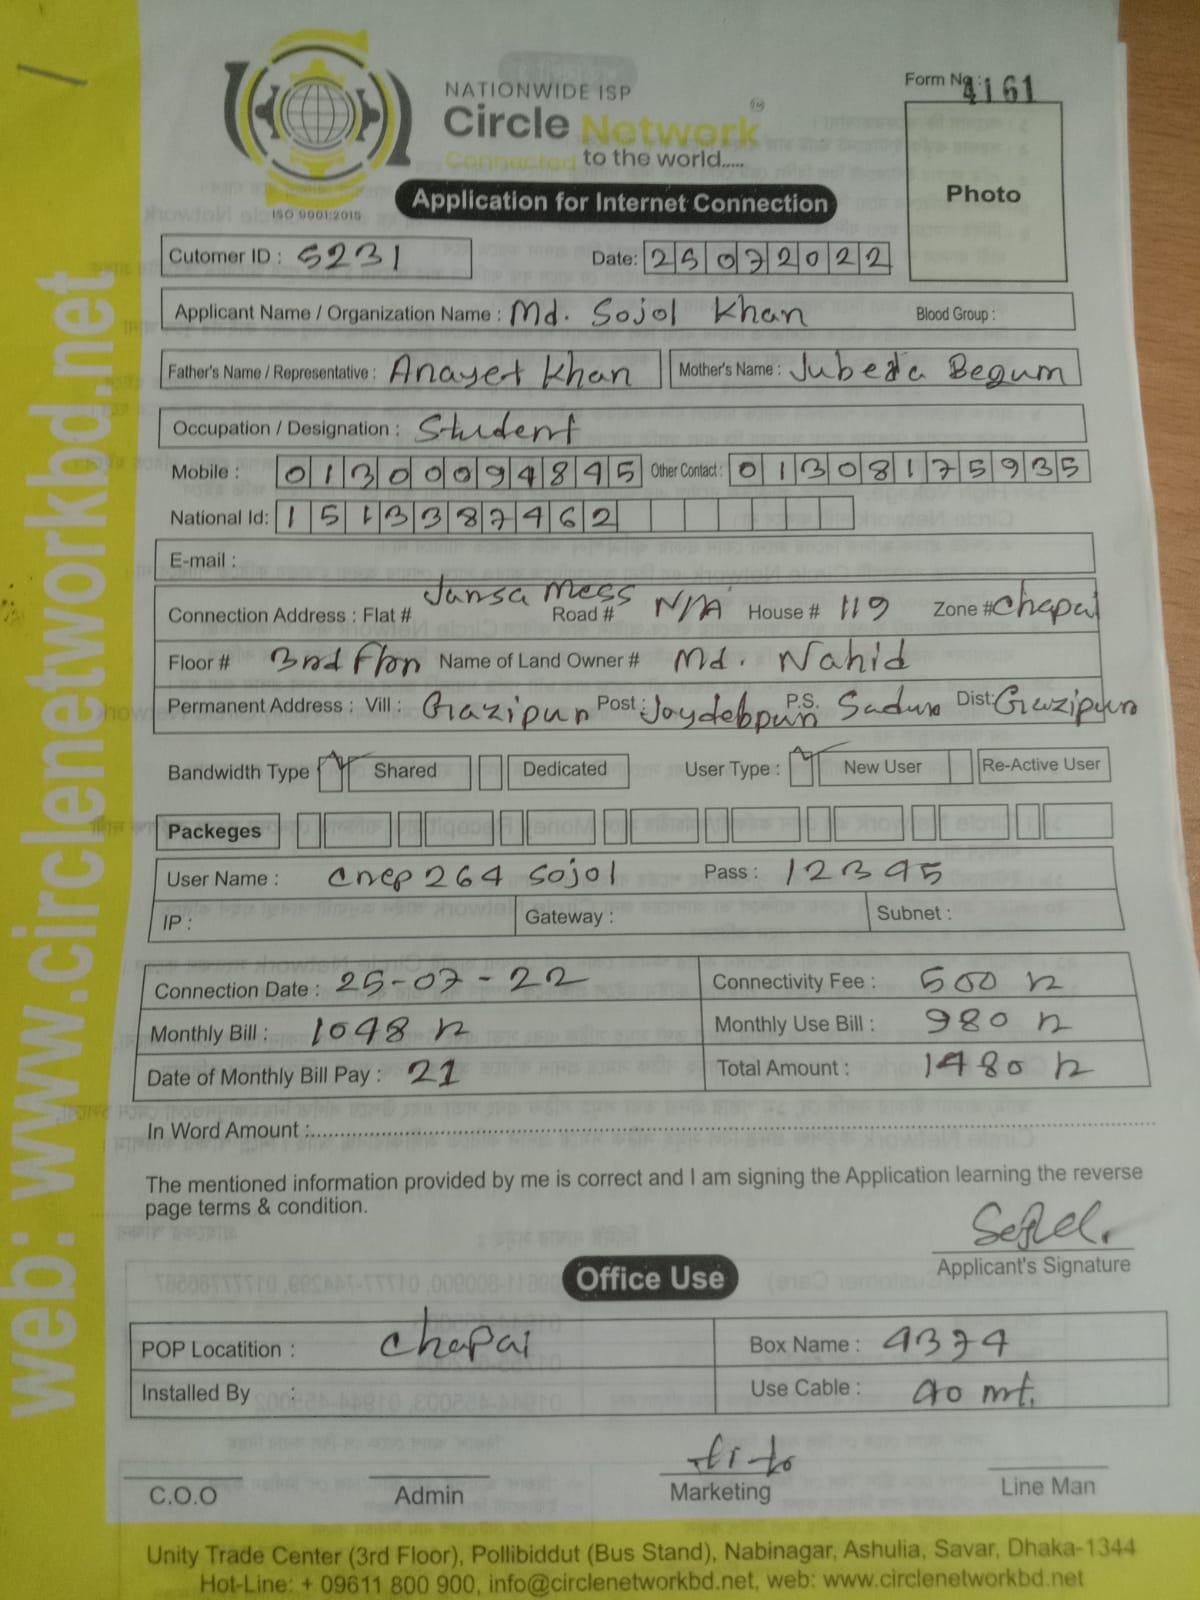 web: www.circlenetworkbd.net
NATIONWIDE ISP
Circle Network
Connected to the world.....
ISO 9001:2015
Form No : 4161
Photo
Application for Internet Connection
Cutomer ID : 5231 Date: 25072022
Applicant Name / Organization Name : Md. Sojol Khan Blood Group :
Father's Name / Representative : Anayet Khan Mother's Name : Jubeda Begum
Occupation / Designation : Student
Mobile : 01300094845 Other Contact : 01308175935
National Id: 1513387462
E-mail :
Connection Address : Flat # Jansa Mess Road # N/A House # 119 Zone # Chapai
Floor # 3rd Floor Name of Land Owner # Md. Nahid
Permanent Address : Vill : Gazipur Post : Joydebpur P.S. Sadar Dist: Gazipur
Bandwidth Type Shared Dedicated User Type : New User Re-Active User
Packeges
User Name : cnep264 sojol Pass : 12345
IP : Gateway : Subnet :
Connection Date : 25-07-22 Connectivity Fee : 500
Monthly Bill : 1048 Monthly Use Bill : 980
Date of Monthly Bill Pay : 21 Total Amount : 1480
In Word Amount :
The mentioned information provided by me is correct and I am signing the Application learning the reverse
page terms & condition.
Applicant's Signature
Office Use
POP Locatition : Chapai Box Name : 4374
Installed By : Use Cable : 40 mt.
C.O.O Admin Marketing Line Man
Unity Trade Center (3rd Floor), Pollibiddut (Bus Stand), Nabinagar, Ashulia, Savar, Dhaka-1344
Hot-Line: + 09611 800 900, info@circlenetworkbd.net, web: www.circlenetworkbd.net